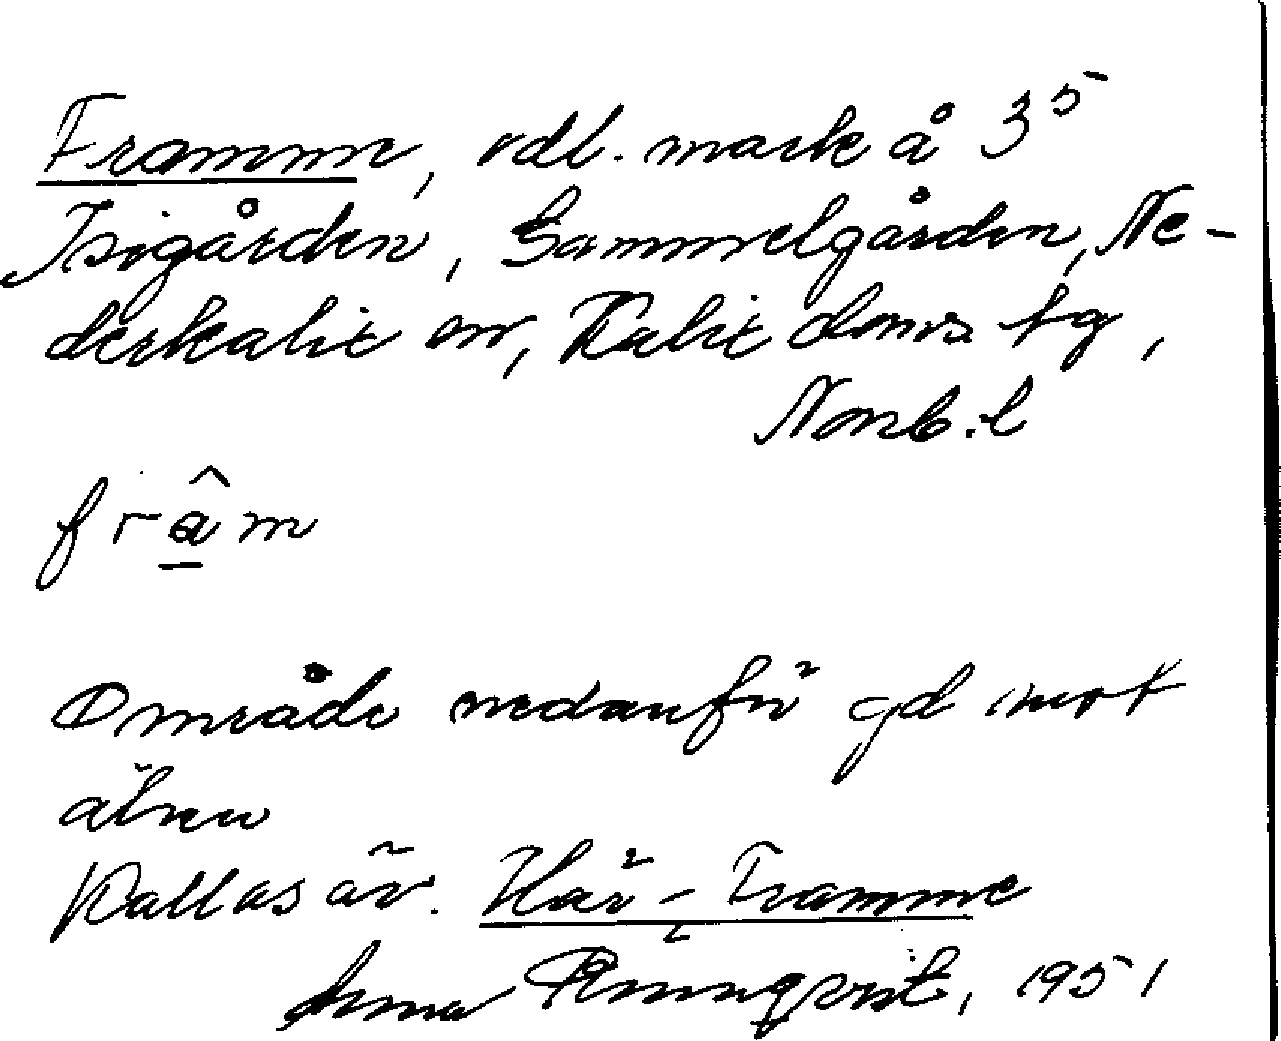 Framme, odl. mark å 3⁵
Isigården, Gammelgården, Ne-
derkalix sn, Kalix domstg,
Norrb. l
frâm
Område nedanför gd mot
älven
Kallas äv. Här-Framme
Anna Rönnqvist, 1951